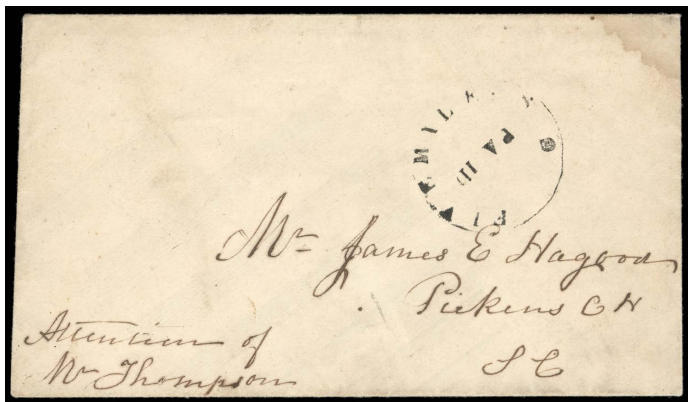 FIVE MILE
PAID
Mr James E Hagood
Pickens C H
S C
Attention of
Mr Thompson